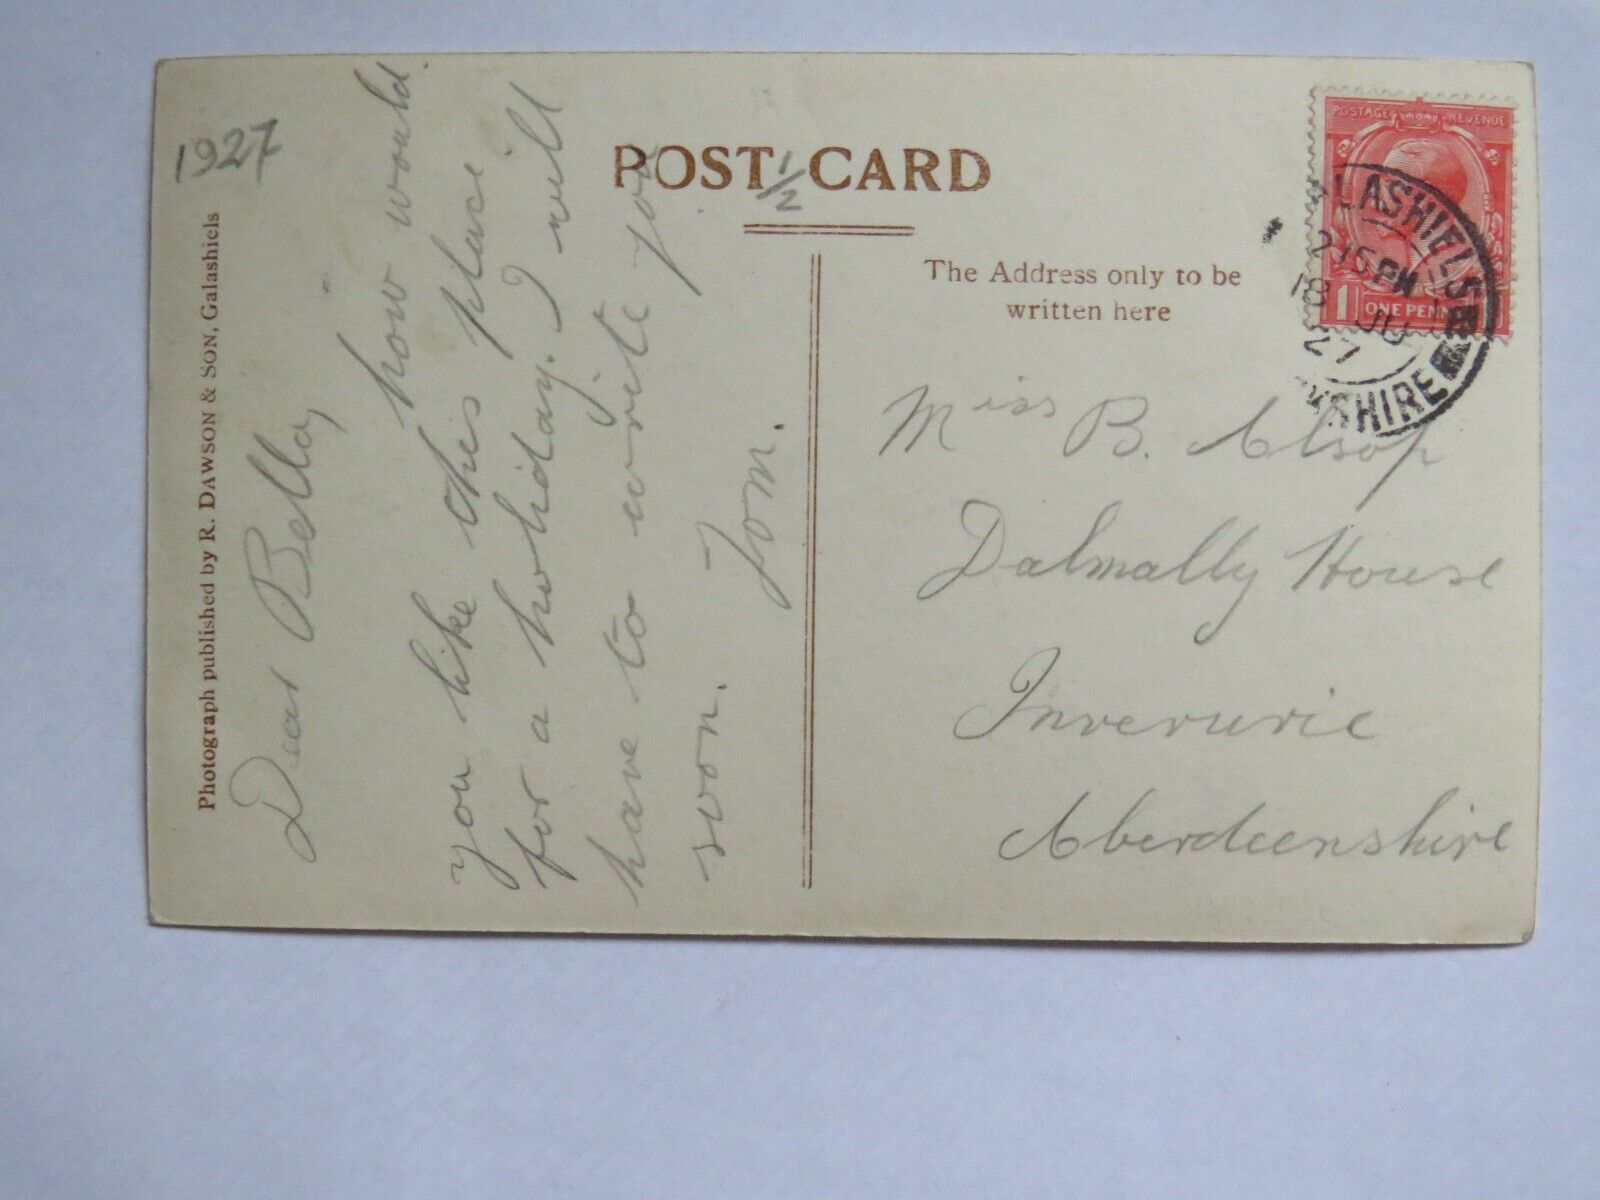 1927
POST CARD
1/2
Photograph published by R. DAWSON & SON, Galashiels
Dear Bella,
how would
you like this place
for a holiday. I will
have to write you
soon.
Tom.
The Address only to be
written here
Miss B. Alsop
Dalmally House
Inverurie
Aberdeenshire
POSTAGE REVENUE
1 ONE PENNY
LASHIELS
2 15 PM
18 JU
27
KSHIRE